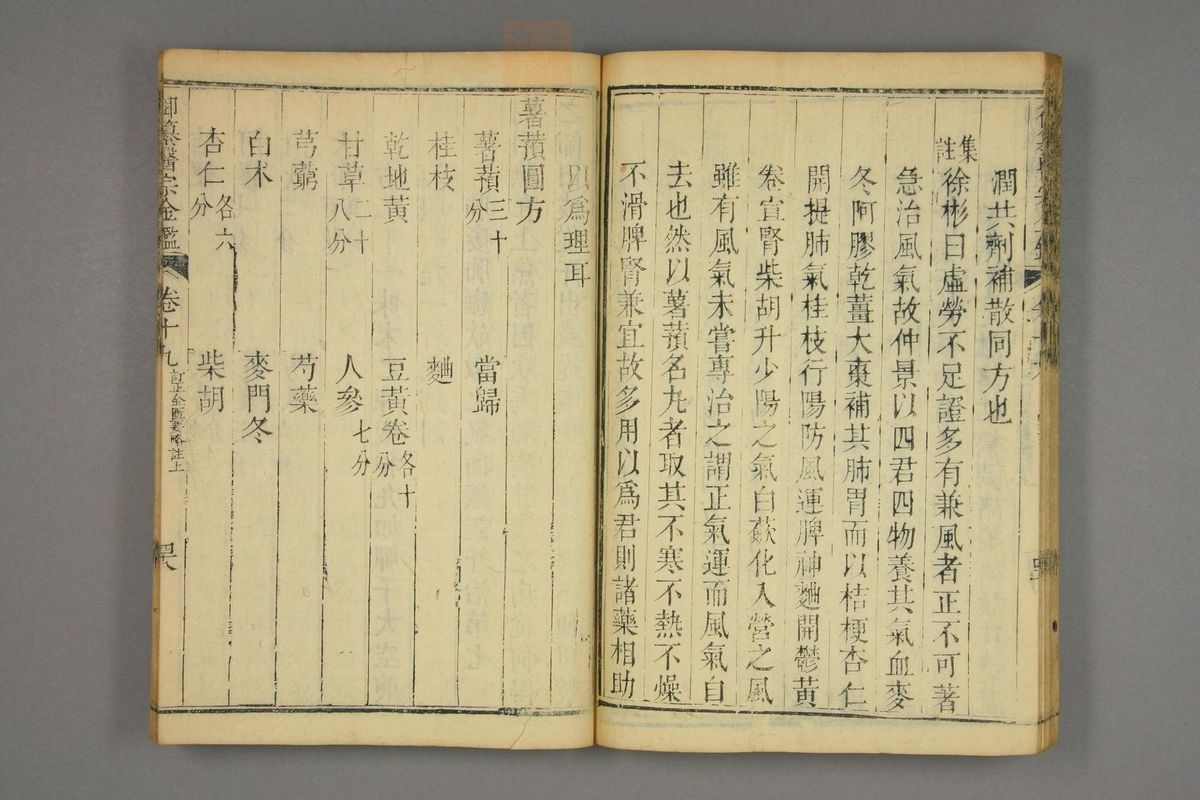 潤共劑補散同方也
集註徐彬曰虛勞不足證多有兼風者正不可著
急治風氣故仲景以四君四物養其氣血麥
冬阿膠乾薑大棗補其肺胃而以桔梗杏仁
開提肺氣桂枝行陽防風運脾神麯開鬱黃
卷宣腎柴胡升少陽之氣白蘞化入營之風
雖有風氣未嘗專治之謂正氣運而風氣自
去也然以薯蕷名丸者取其不寒不熱不燥
不滑脾腎兼宜故多用以爲君則諸藥相助
以爲理耳
薯蕷圓方
薯蕷三十分 當歸
桂枝 麯
乾地黃 豆黃卷各十分
甘草二十八分 人參七分
芎藭 芍藥
白朮 麥門冬
杏仁各六分 柴胡
御纂醫宗金鑑 卷十九 訂正金匱要略註上